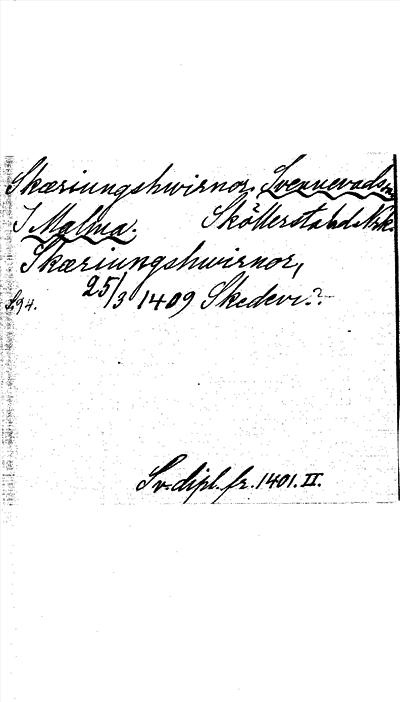 Skæriungshwirnor. Svennevads sn
I Malma. Sköllersta hd Nrk.
Skæriungshwirnor,
S. 94. 25/3 1409 Skedevi?
Sv. dipl. fr. 1401. II.